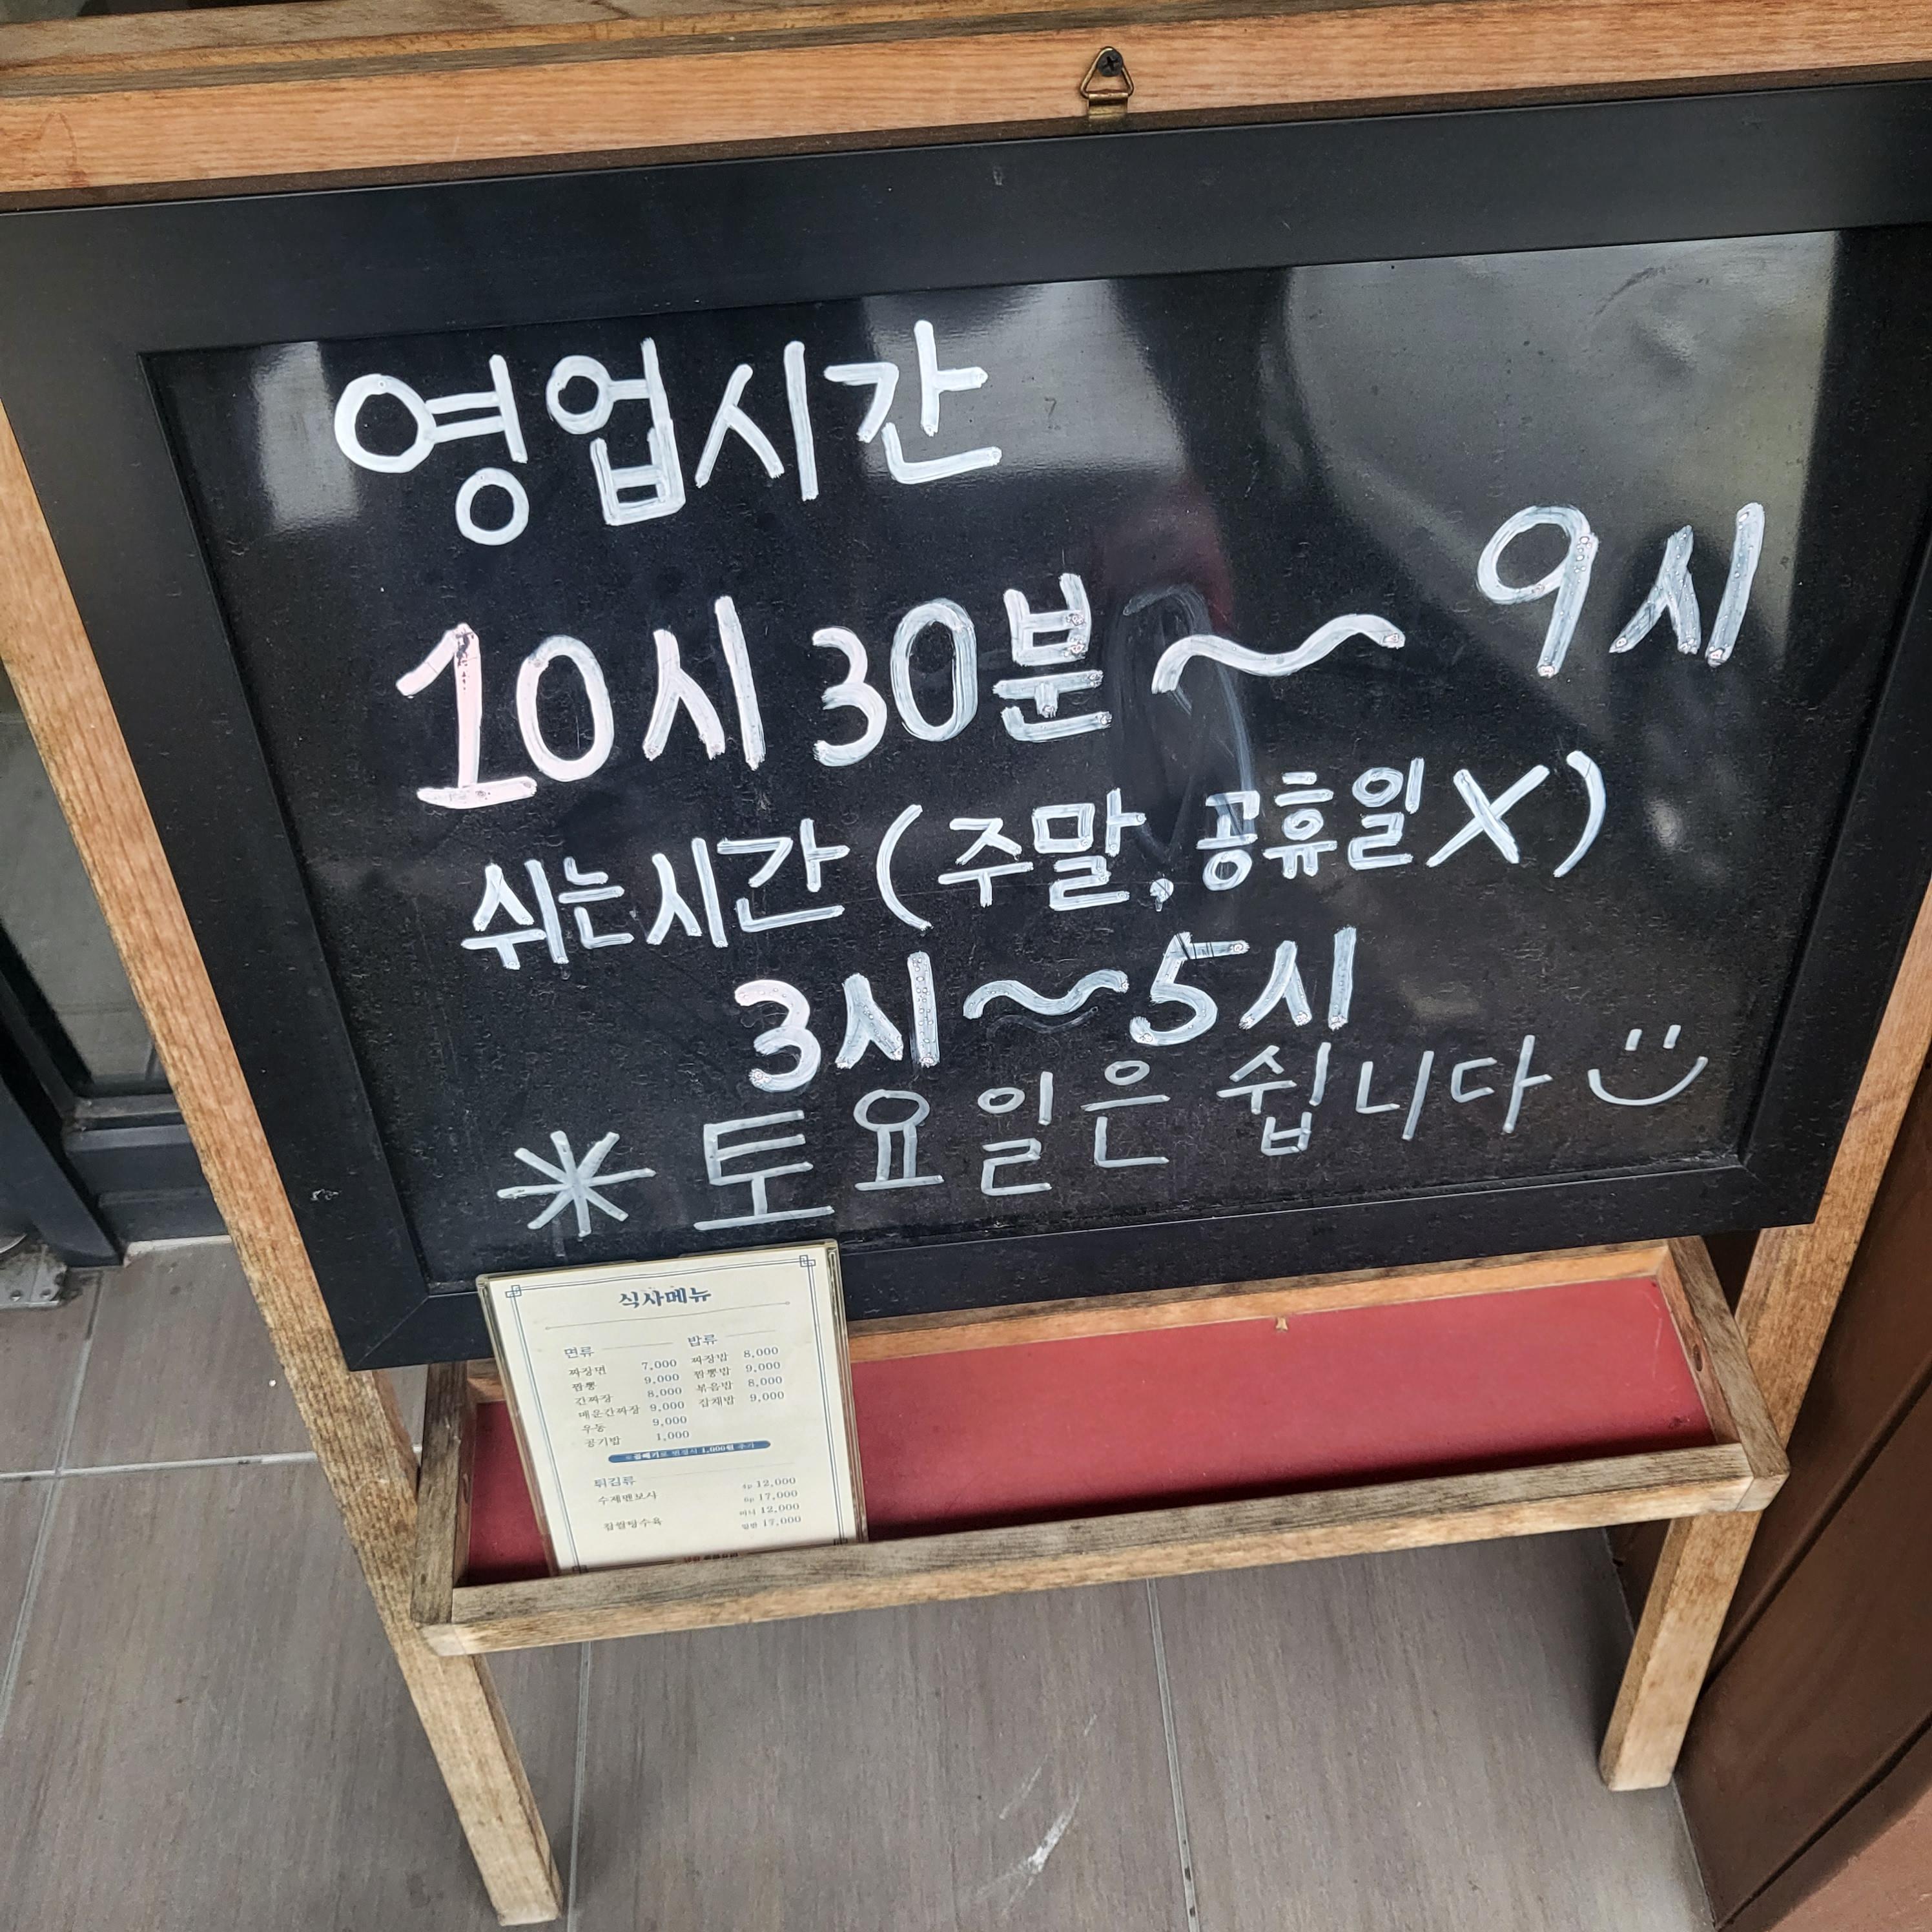 영업시간
10시 30분 ~ 9시
쉬는시간 (주말, 공휴일 X)
3시~5시
* 토요일은 쉽니다
식사메뉴
면류
짜장면 7,000
짬뽕 9,000
간짜장 8,000
매운간짜장 9,000
우동 9,000
공기밥 1,000
밥류
짜장밥 8,000
짬뽕밥 9,000
볶음밥 8,000
잡채밥 9,000
※곱빼기로 변경시 1,000원 추가
튀김류
수제멘보샤 4p 12,000
6p 17,000
찹쌀탕수육 미니 12,000
일반 17,000